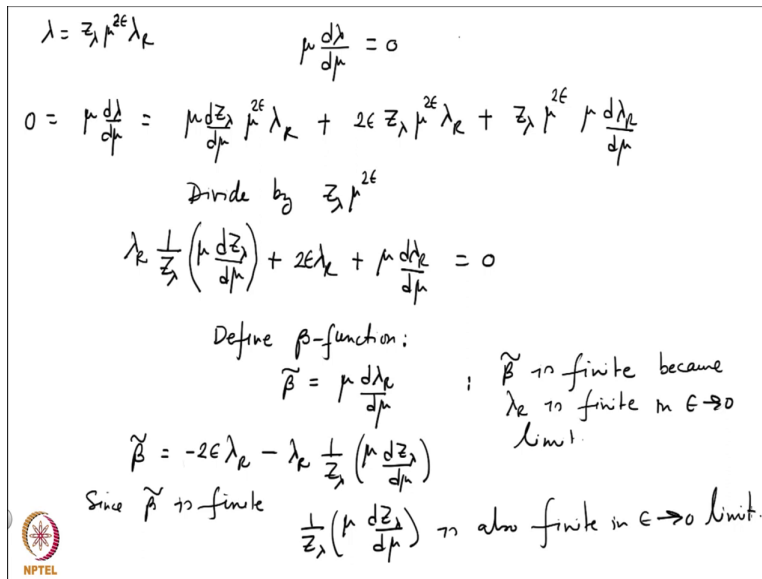 λ = Z_λ μ^{2ϵ} λ_R      μ dλ/dμ = 0
0 = μ dλ/dμ = μ dZ_λ/dμ μ^{2ϵ} λ_R + 2ϵ Z_λ μ^{2ϵ} λ_R + Z_λ μ^{2ϵ} μ dλ_R/dμ
Divide by Z_λ μ^{2ϵ}
λ_R 1/Z_λ (μ dZ_λ/dμ) + 2ϵλ_R + μ dλ_R/dμ = 0
Define β-function:
β̃ = μ dλ_R/dμ ; β̃ is finite because
λ_R is finite in ϵ→0
limit.
β̃ = -2ϵλ_R - λ_R 1/Z_λ (μ dZ_λ/dμ)
Since β̃ is finite
1/Z_λ (μ dZ_λ/dμ) is also finite in ϵ→0 limit.
NPTEL